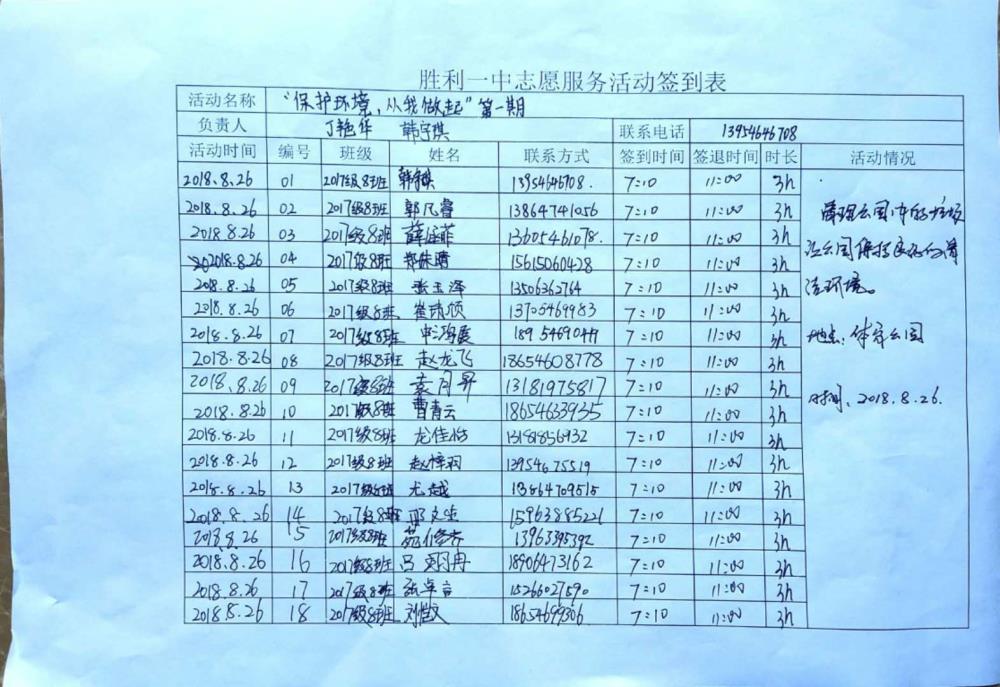 胜利一中志愿服务活动签到表
活动名称 "保护环境、从我做起"第一期
负责人 丁艳华 韩宇琪 联系电话 13954646708
活动时间 编号 班级 姓名 联系方式 签到时间 签退时间 时长 活动情况
2018.8.26 01 2017级8班 韩宇琪 13954646708. 7:10 11:00 3h
2018.8.26 02 2017级8班 郭凡睿 13864741056 7:10 11:00 3h 清理公园中的垃圾
2018.8.26 03 2017级8班 13605461078. 7:10 11:00 3h 让公园保持良好的清
2018.8.26 04 2017级8班 15615060428 7:10 11:00 3h
2018.8.26 05 2017级8班 张玉泽 13506362764 7:10 11:00 3h 洁环境。
2018.8.26 06 2017级8班 崔靖颀 13705469983 7:10 11:00 3h
2018.8.26 07 2017级8班 7:10 11:00 3h 地点:体育公园
2018.8.26 08 2017级8班 赵龙飞 18654608778 7:10 11:00 3h
2018.8.26 09 2017级8班 袁月昇 13181975817 7:10 11:00 3h
2018.8.26 10 2017级8班 曹青云 18654633935 7:10 11:00 3h 时间、2018.8.26.
2018.8.26 11 2017级8班 龙佳怡 13181856932 7:10 11:00 3h
2018.8.26 12 2017级8班 赵梓羽 13954675519 7:10 11:00 3h
2018.8.26 13 2017级8班 尤越 13864709515 7:10 11:00 3h
2018.8.26 14 2017级8班 15963885221 7:10 11:00 3h
2018.8.26 15 2017级8班 13963395392 7:10 11:00 3h
2018.8.26 16 2017级8班 吕 冉 18906473162 7:10 11:00 3h
2018.8.26 17 2017级8班 张卓言 15266027590 7:10 11:00 3h
2018.8.26 18 2017级8班 18654699306 7:10 11:00 3h